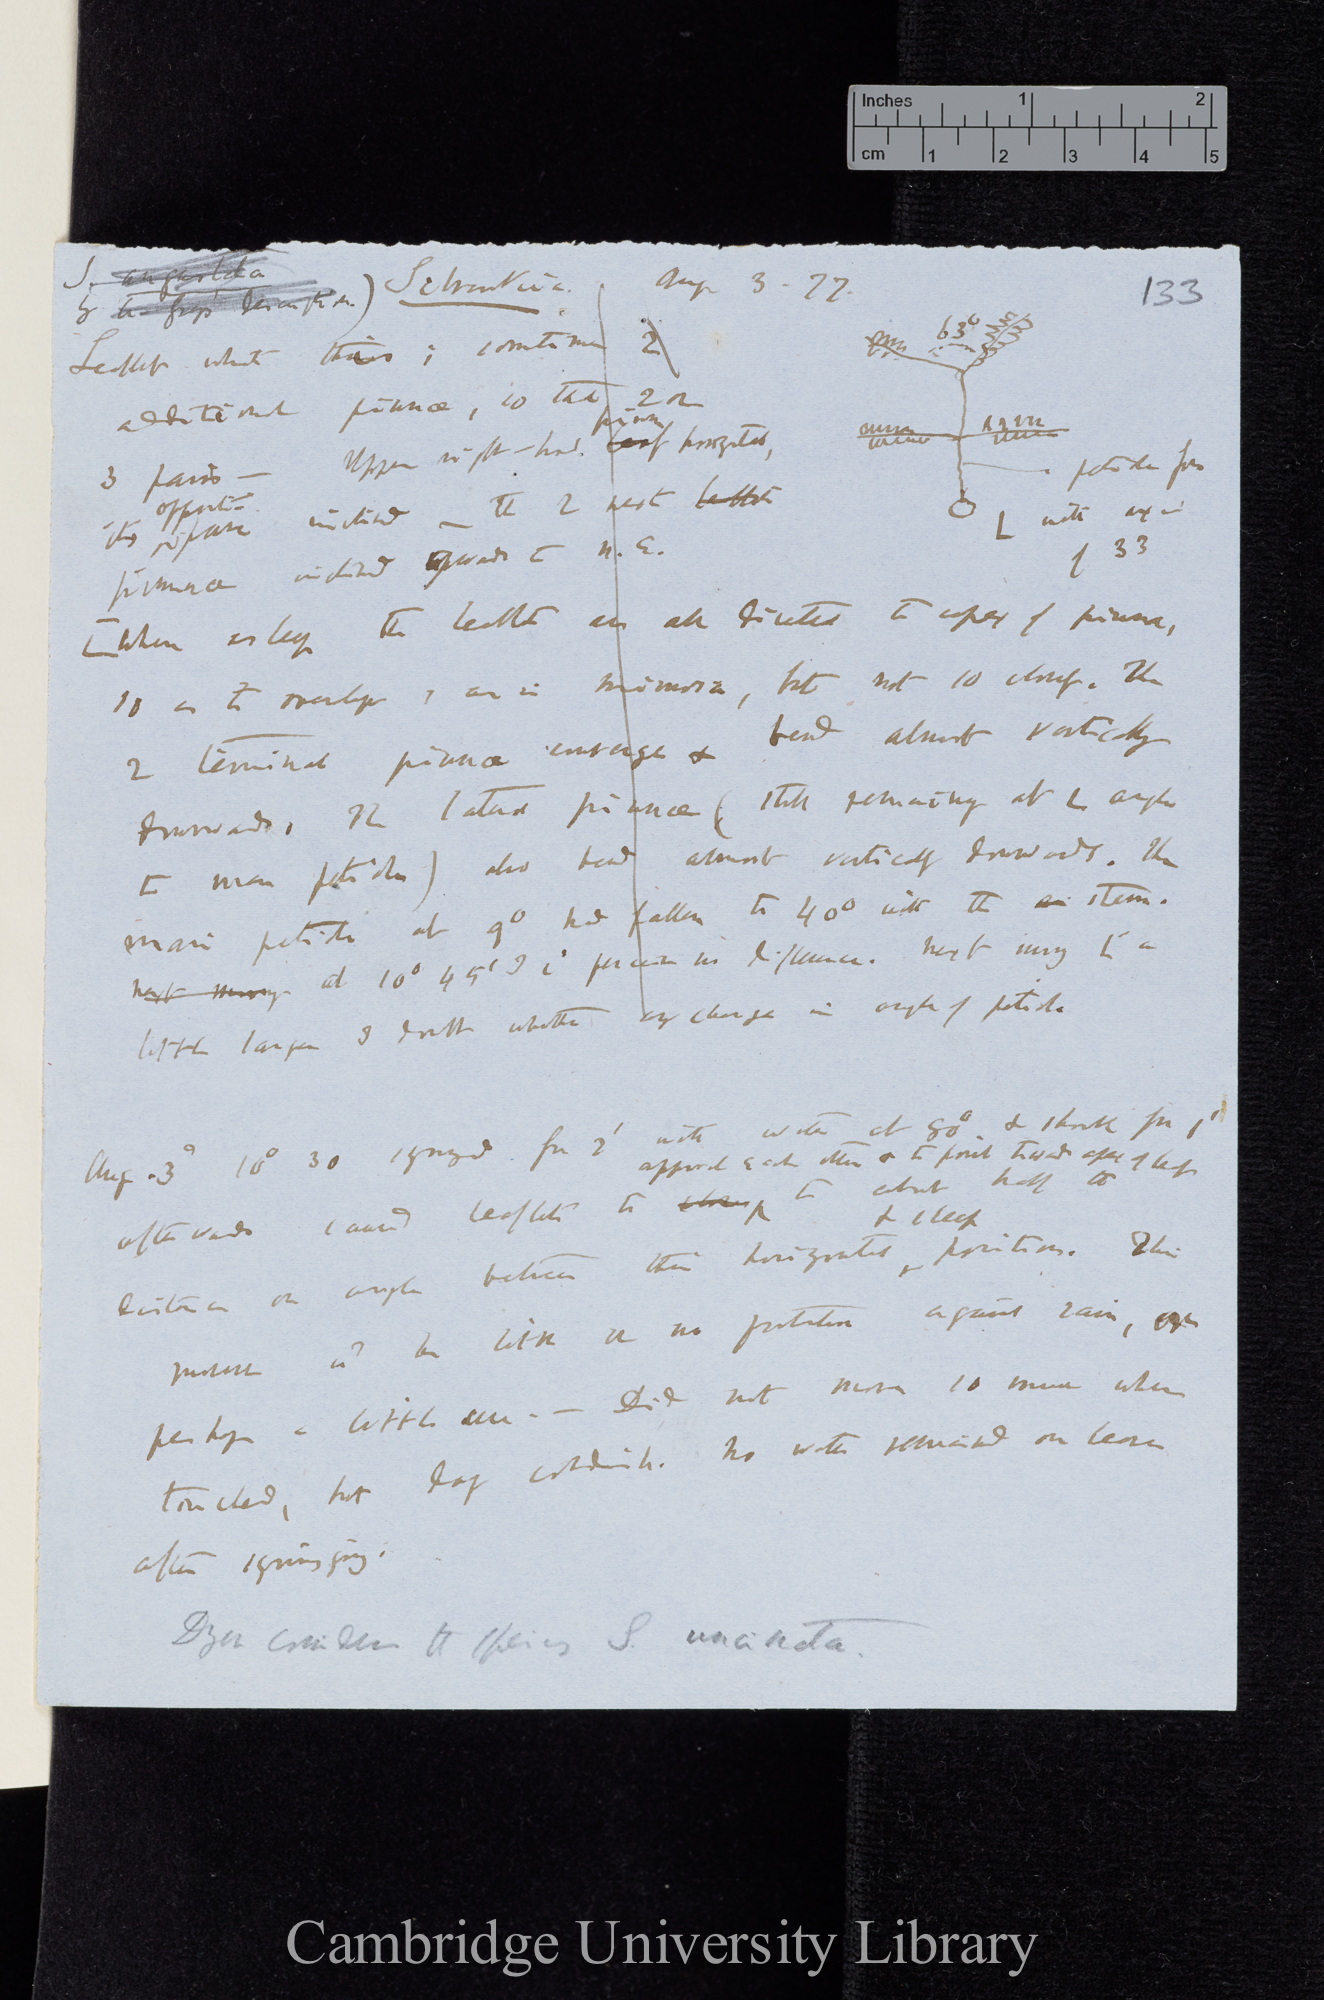 Inches 1 2
cm 1 2 3 4 5
133
S. angustata
Schrankia. Aug 3 - 77.
63°
Leaflets ; sometimes 2
additional pinnae, so that 2 or
pinna
3 pairs — Upper right-hand leaf horizontal,
opposite
its inclined — the 2 next leaflets
pinnae inclined upwards to N.E.
petiole
L with axis
of 33
When asleep the leaflets are all directed to apex of pinna,
so as to overlap, as in mimosa, but not so closely. The
2 terminal pinnae converge & bend almost vertically
downwards. The lateral pinnae (still remaining at L angles
to main petiole) also bend almost vertically downwards. The
main petiole at 9° had fallen to 40° with the stem.
next morng at 10° 45' I perceive no difference. next morng
little larger I doubt whether any change in angle of petiole
Aug. 3d 10° 30 syringed for 2' with water at 80° & shook for 1'
approach each other & to point towards apex of leaf
afterwards caused leaflets to sleep to about half the
& sleep
distance or angle between their horizontal position. This
movement wd be little or no protection against rain,
perhaps a little — Did not move so much when
touched, but day coldish. No water remained on leaves
after syringing.
Dyer considers the species S. uncinata.
Cambridge University Library